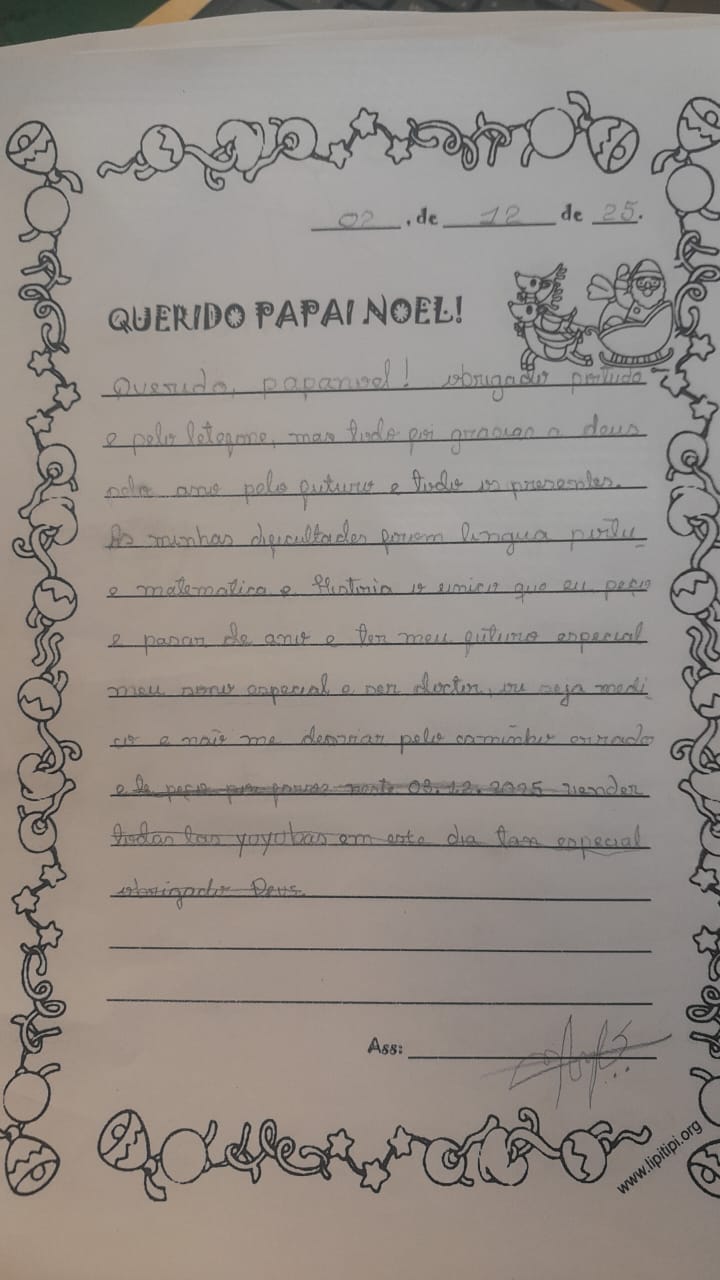 02, de 12 de 25.
QUERIDO PAPAI NOEL!
Querido, papanoel! obrigador portudo
e pelo letegone, mas tudo foi gracias a deus
ndo ano pelo futuro e tudo os presentes.
As minhas dificultades forem lingua portu_
e matematica e Historia o unico que eu peço
e pasar de ano e ter meu futuro especial
meu sono especial e ser doctor, ou seja medi
co e não me desviar pelo caminho errado
e le peço por favor neste 03.12.2025 vender
todas las yoyobas em este dia tan especial
obrigador Deus.
Ass:
www.lipitipi.org